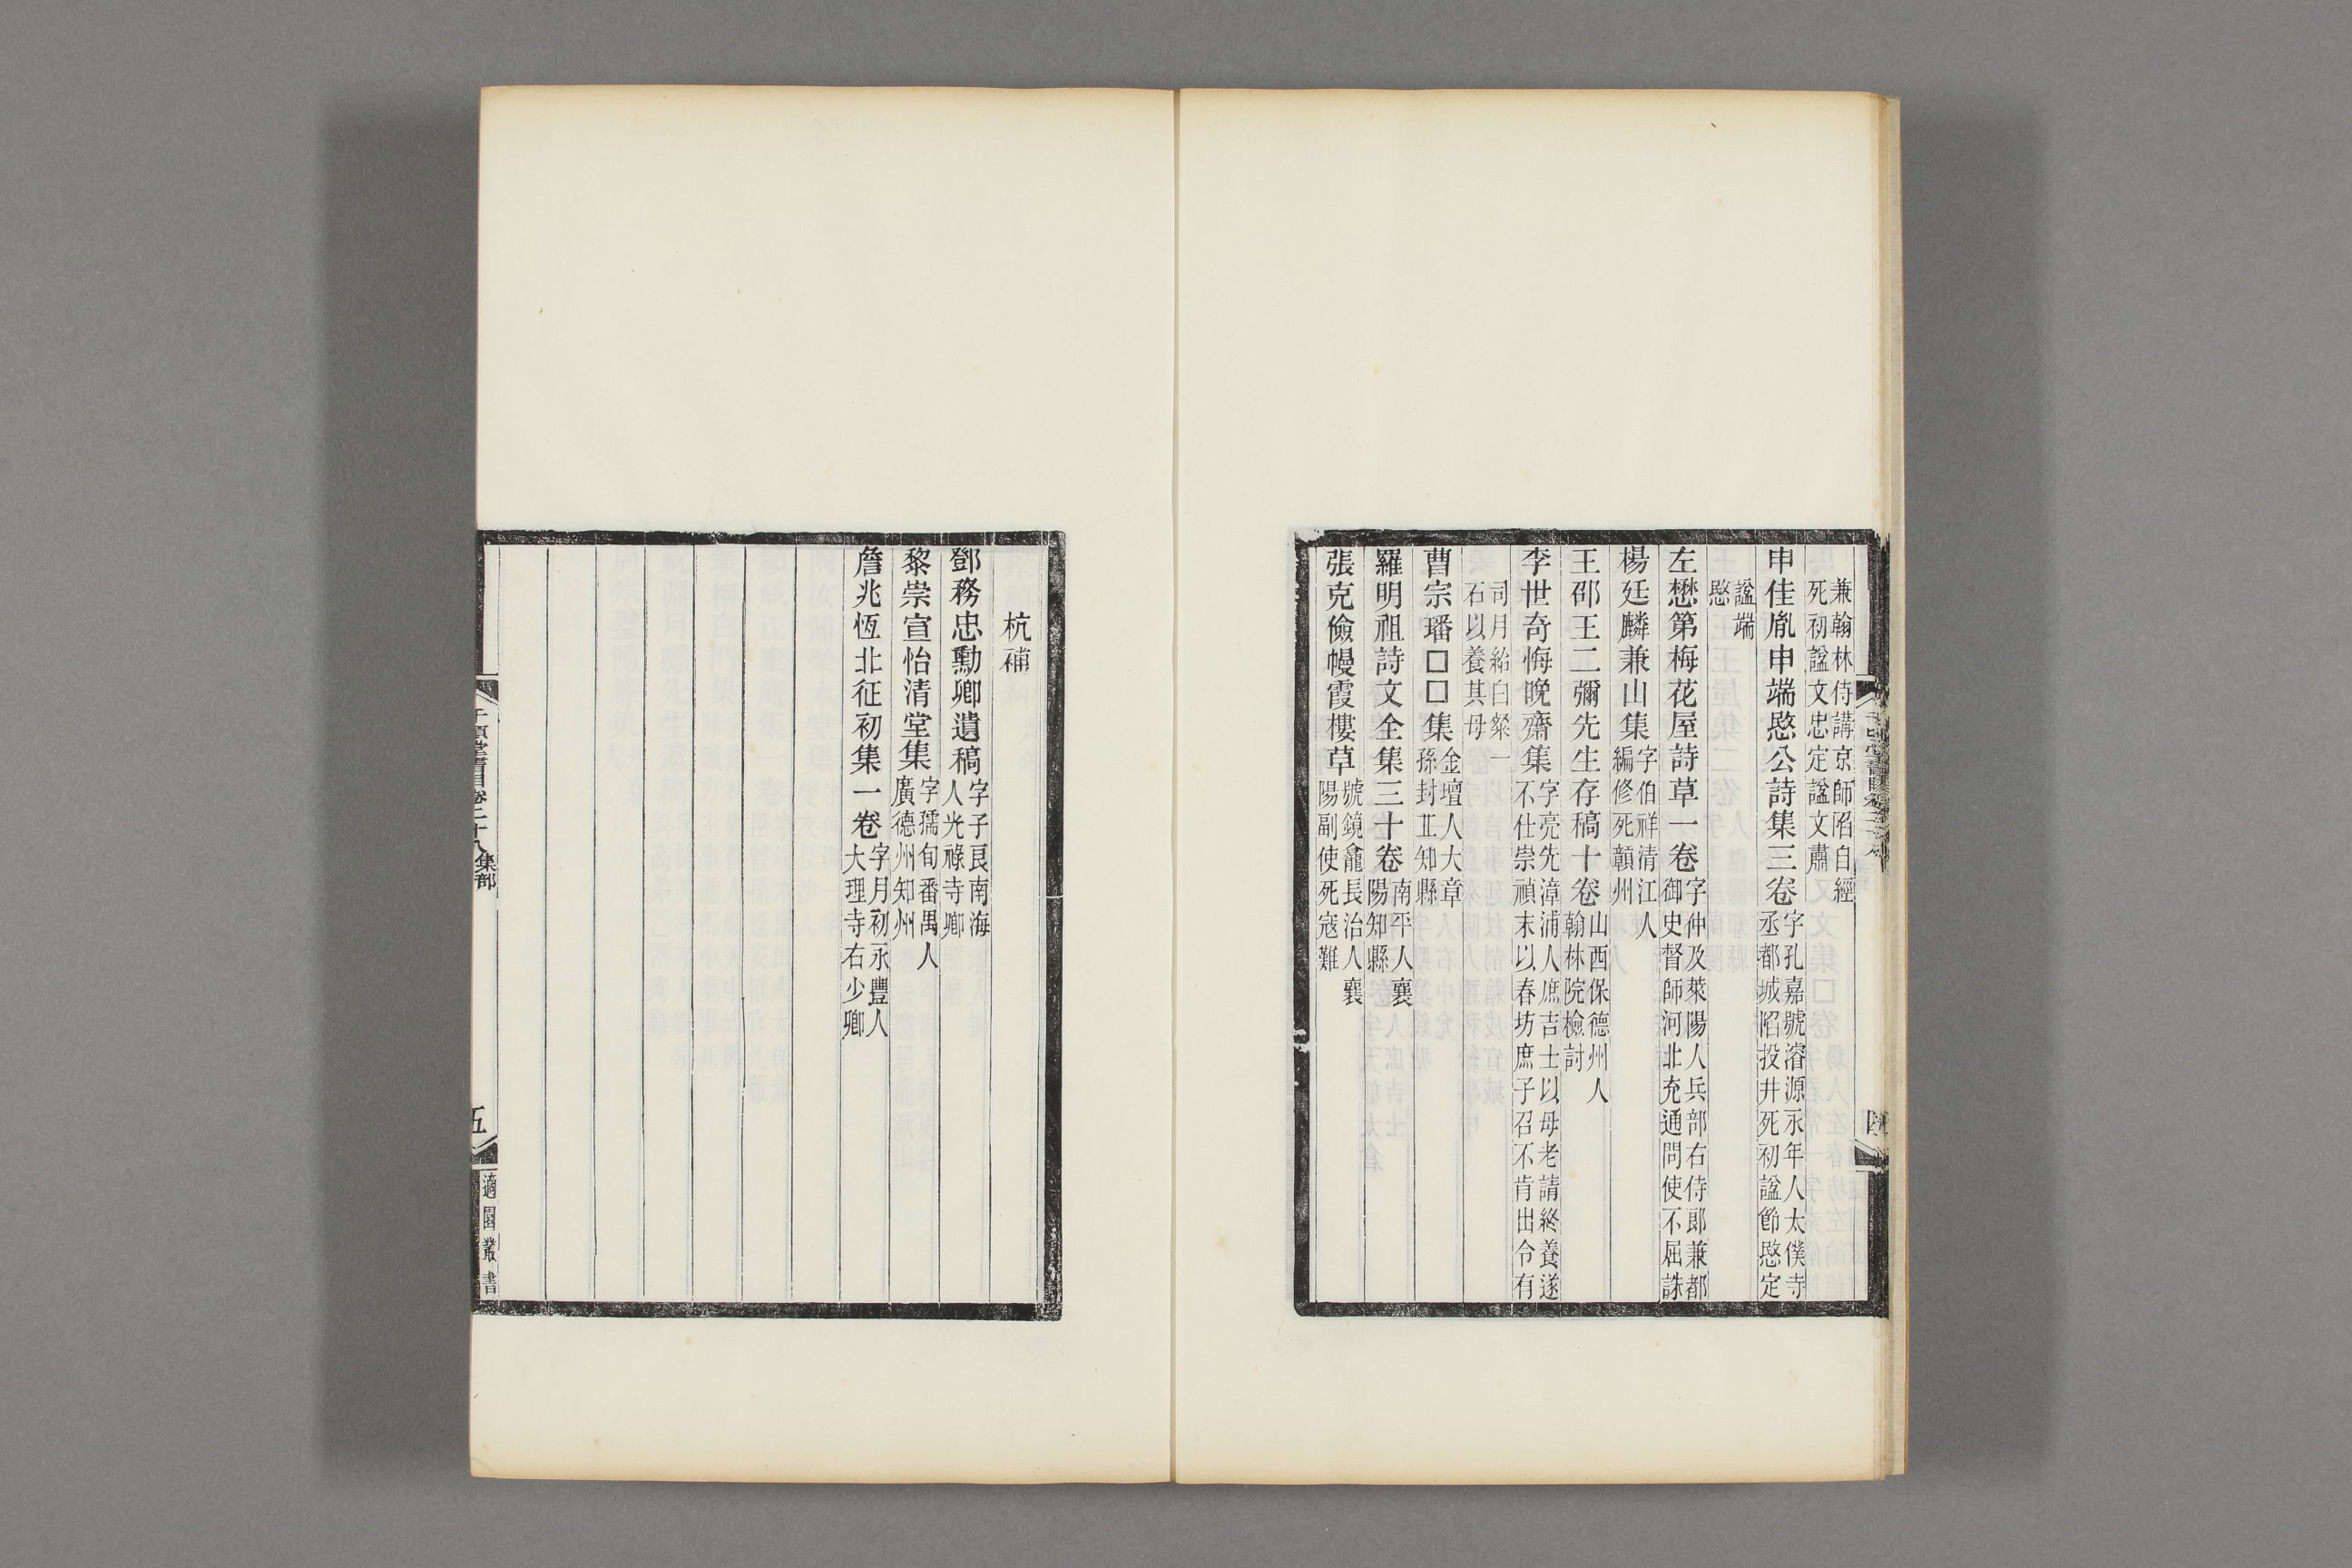 兼翰林侍講京師陷自經
死初諡文忠定諡文肅
申佳胤申端愍公詩集三卷字孔嘉號濬源永年人太僕寺
丞都城陷投井死初諡節愍定
諡端
愍
左懋第梅花屋詩草一卷字仲及萊陽人兵部右侍郎兼都
御史督師河北充通問使不屈誅
楊廷麟兼山集字伯祥清江人
編修死贑州
王邵王二彌先生存稿十卷山西保德州人
翰林院檢討
李世奇悔晚齋集字亮先漳浦人庶吉士以母老請終養遂
不仕崇禎末以春坊庶子召不肯出令有
司月給白粲一
石以養其母
曹宗璠□□集金壇人大章
孫封丘知縣
羅明祖詩文全集三十卷南平人襄
陽知縣
張克儉幔霞樓草號鏡龕長治人襄
陽副使死寇難
杭補
鄧務忠勳卿遺稿字子艮南海
人光祿寺卿
黎崇宣怡清堂集字孺旬番禺人
廣德州知州
詹兆恆北征初集一卷字月初永豐人
大理寺右少卿
千頃堂書目卷二十八集部
五
適園叢書